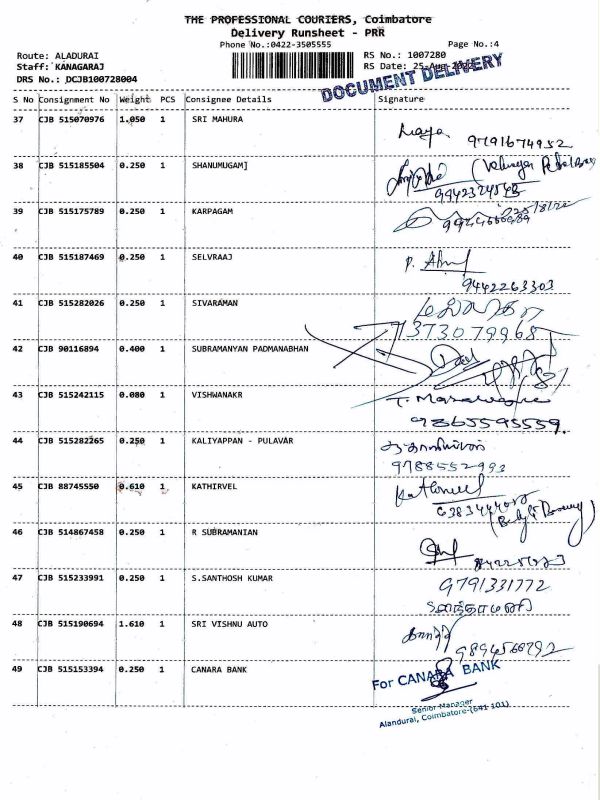 THE PROFESSIONAL COURIERS, Coimbatore
Delivery Runsheet - PRR
Phone No.:0422-3505555
Page No.:4
Route: ALADURAI
RS No.: 1007280
Staff: KANAGARAJ
RS Date: 25-Aug-2022
DRS No.: DCJB100728004
DOCUMENT DELIVERY
S No Consignment No Weight PCS Consignee Details Signature
37 CJB 515070976 1.050 1 SRI MAHURA
9791674952
38 CJB 515185504 0.250 1 SHANUMUGAM]
39 CJB 515175789 0.250 1 KARPAGAM
40 CJB 515187469 0.250 1 SELVRAAJ
9442263303
41 CJB 515282026 0.250 1 SIVARAMAN
7373079968
42 CJB 90116894 0.400 1 SUBRAMANYAN PADMANABHAN
43 CJB 515242115 0.080 1 VISHWANAKR
9865595559.
44 CJB 515282265 0.250 1 KALIYAPPAN - PULAVAR
9788552993
45 CJB 88745550 0.610 1 KATHIRVEL
Kathirvel
46 CJB 514867458 0.250 1 R SUBRAMANIAN
47 CJB 515233991 0.250 1 S.SANTHOSH KUMAR
9791331772
48 CJB 515190694 1.610 1 SRI VISHNU AUTO
9894560792
49 CJB 515153394 0.250 1 CANARA BANK
For CANARA BANK
Senior Manager
Alandurai, Coimbatore-(641 101)